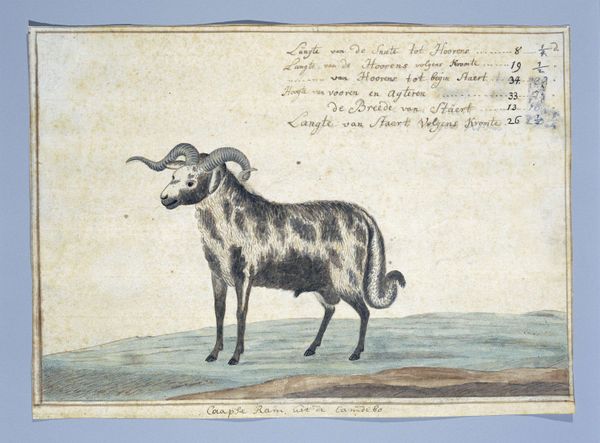 Langte van de Snute tot Hoorens ........... 8 1/4 d
Langte van de Hoorens volgens Kromte ....... 19 1/2
........ van Hoorens tot begin Staert ... 34
Hoogte van vooren en agteren ............... 33
de Breede van Staert ........... 13
Langte van Staert Volgens Kromte 26 2 1/2
Caapse Ram, uit de Camdebo